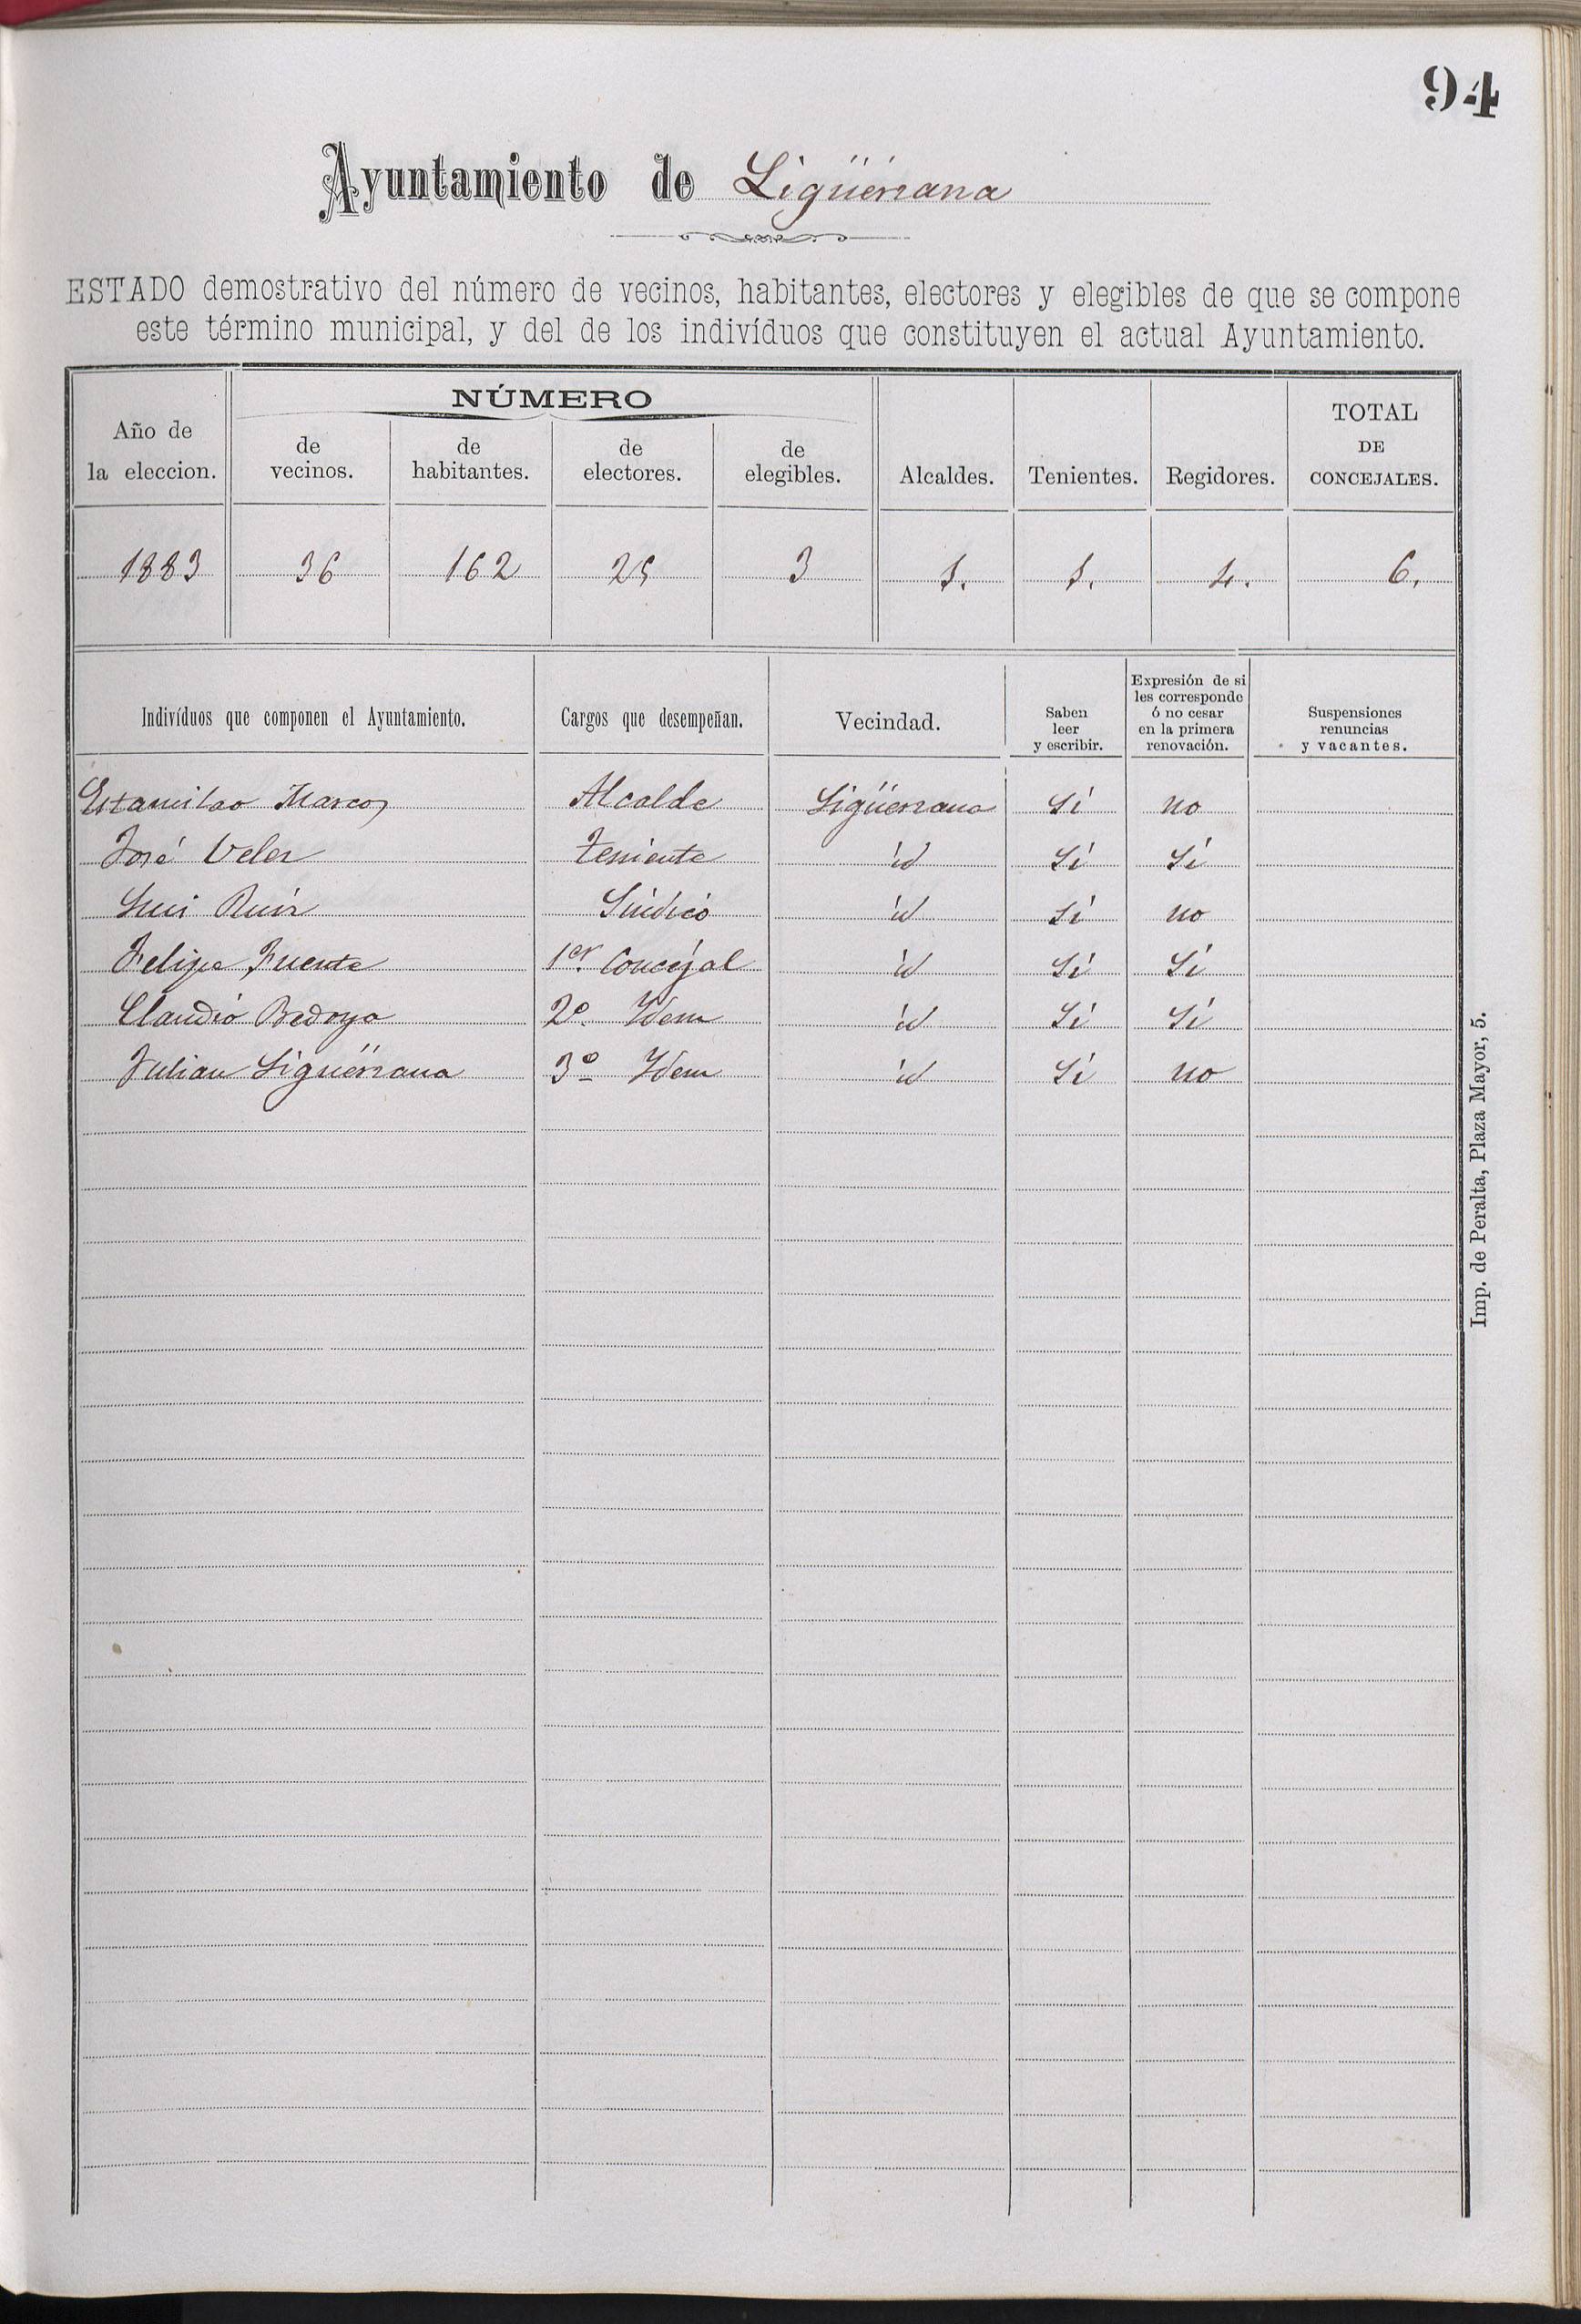 94
Ayuntamiento de Sigüenzana
ESTADO demostrativo del número de vecinos, habitantes, electores y elegibles de que se compone
este término municipal, y del de los indivíduos que constituyen el actual Ayuntamiento.
Año de la eleccion.
NÚMERO
de vecinos.
de habitantes.
de electores.
de elegibles.
Alcaldes.
Tenientes.
Regidores.
TOTAL DE CONCEJALES.
1883 36 162 25 3 1. 1. 4. 6.
Indivíduos que componen el Ayuntamiento.
Cargos que desempeñan.
Vecindad.
Saben leer y escribir.
Expresión de si les corresponde ó no cesar en la primera renovación.
Suspensiones renuncias y vacantes.
Estanislao Marcos Alcalde Sigüenzana Sí no
José Velez Teniente id Sí Sí
Luis Ruiz Síndico id Sí no
Felipe Fuente 1er. Concejal id Sí Sí
Claudio Bedoya 2º. Idem id Sí Sí
Julian Sigüenzana 3º Idem id Sí no
Imp. de Peralta, Plaza Mayor, 5.